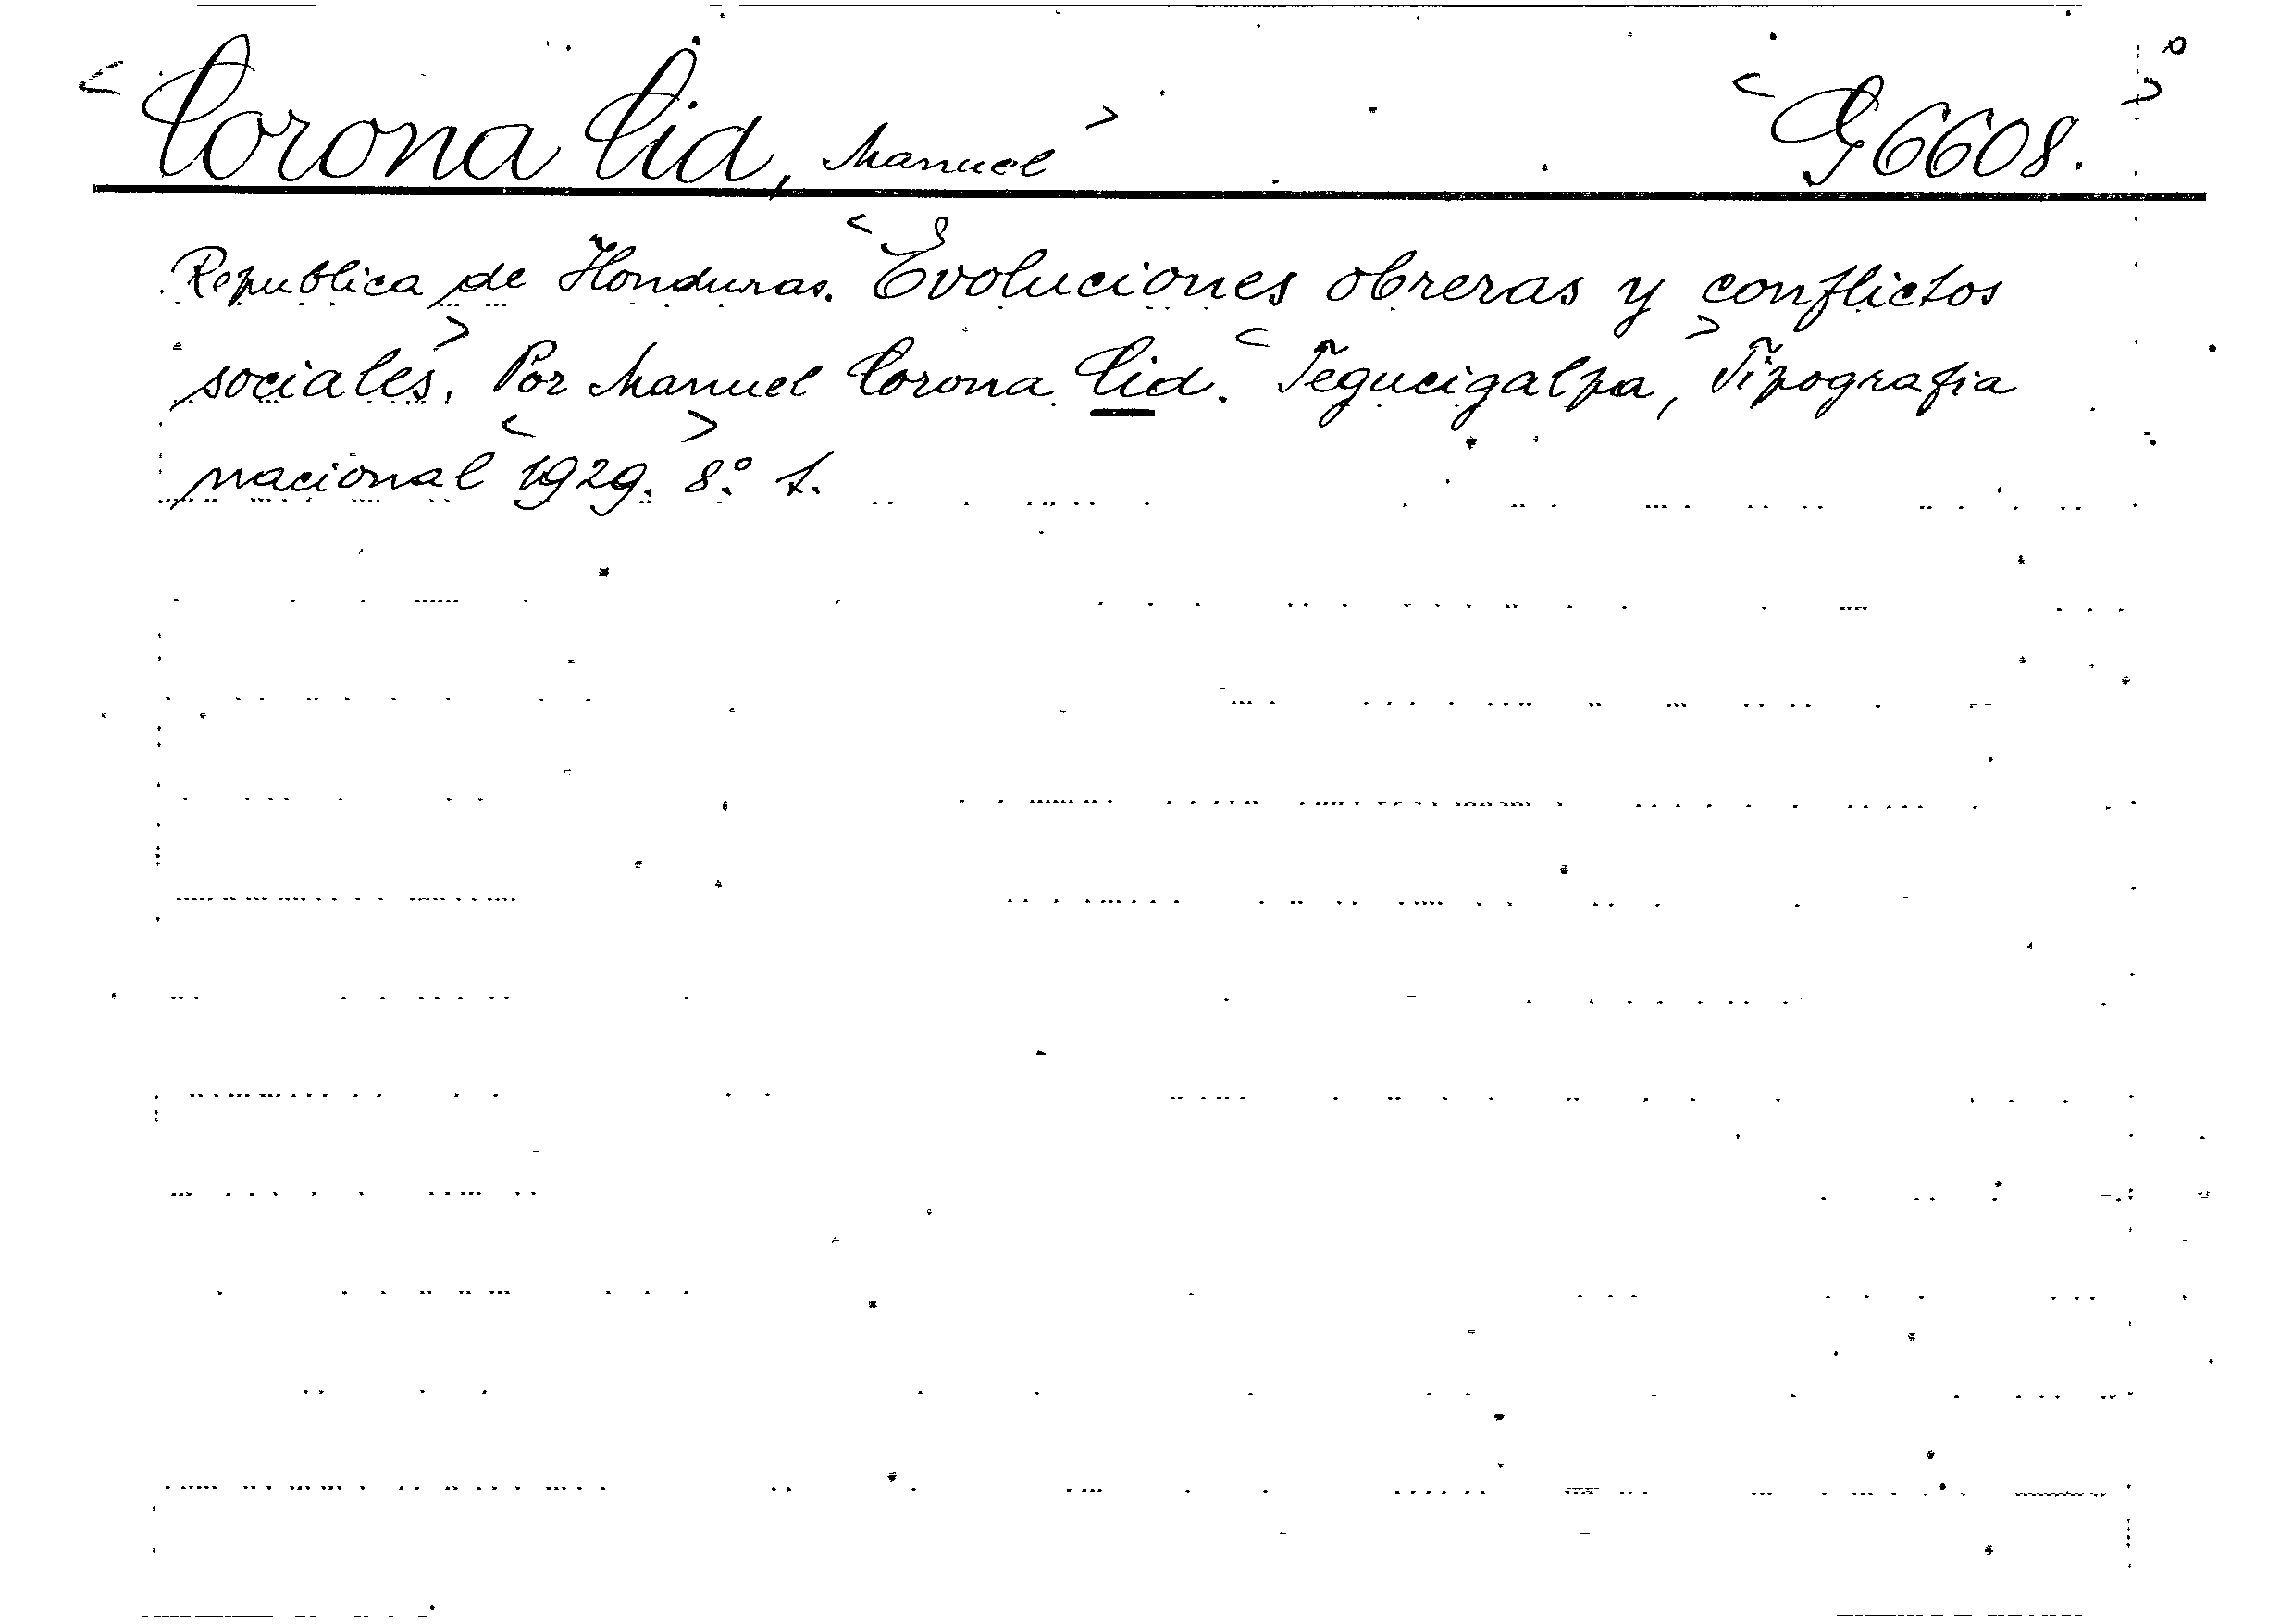 <Corona Cid, Manuel> <G 6608.>
Republica de Honduras. <Evoluciones obreras y conflictos
sociales>. Por Manuel Corona Cid. <Tegucigalpa>, Tipografia
nacional <1929>. 8º. 1.